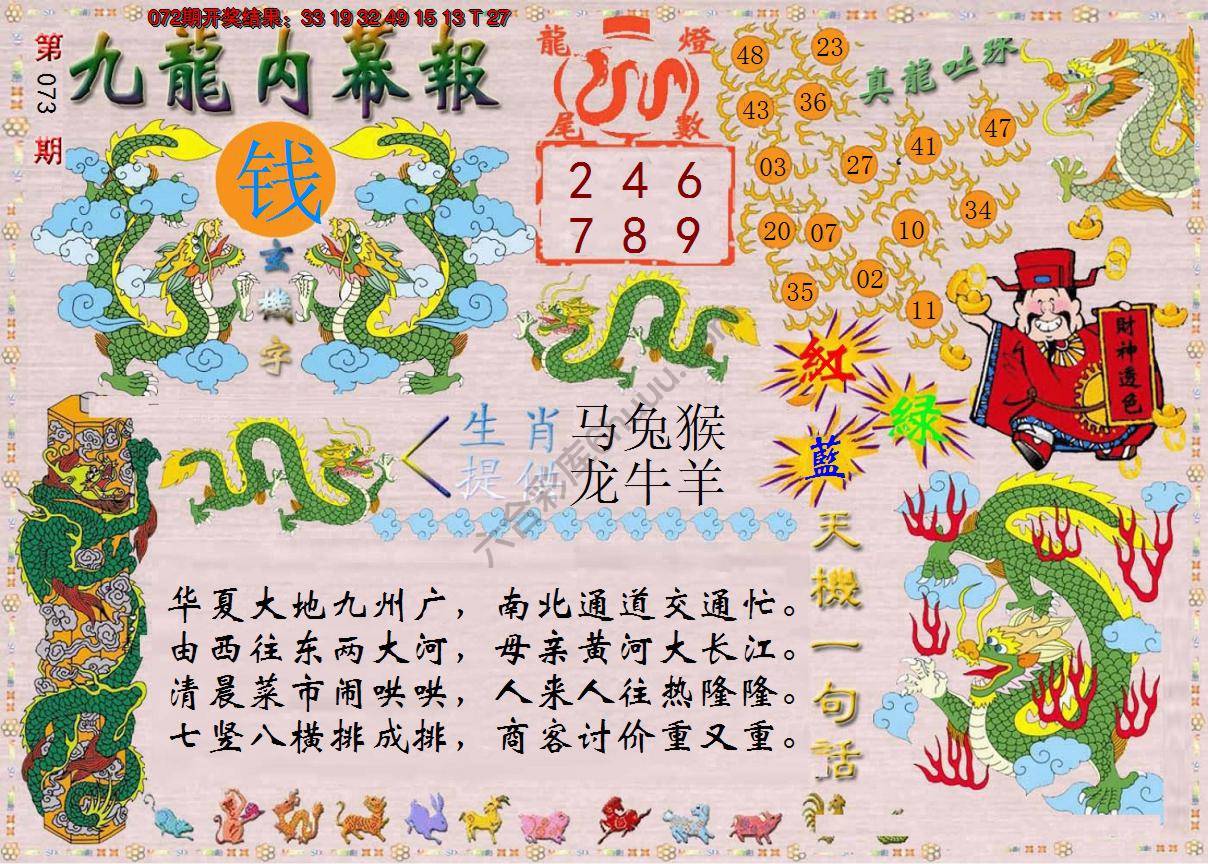 072期开奖结果：33 19 32 49 15 13 T 27
第073期
九龍内幕報
钱
玄機字
龍燈尾數
2 4 6
7 8 9
真龍吐珠
48 23
43 36
03 27 41 47
20 07 10 34
35 02 11
財神透色
紅
綠
藍
生肖 马兔猴
提供 龙牛羊
天機一句話
华夏大地九州广，南北通道交通忙。
由西往东两大河，母亲黄河大长江。
清晨菜市闹哄哄，人来人往热隆隆。
七竖八横排成排，商客讨价重又重。